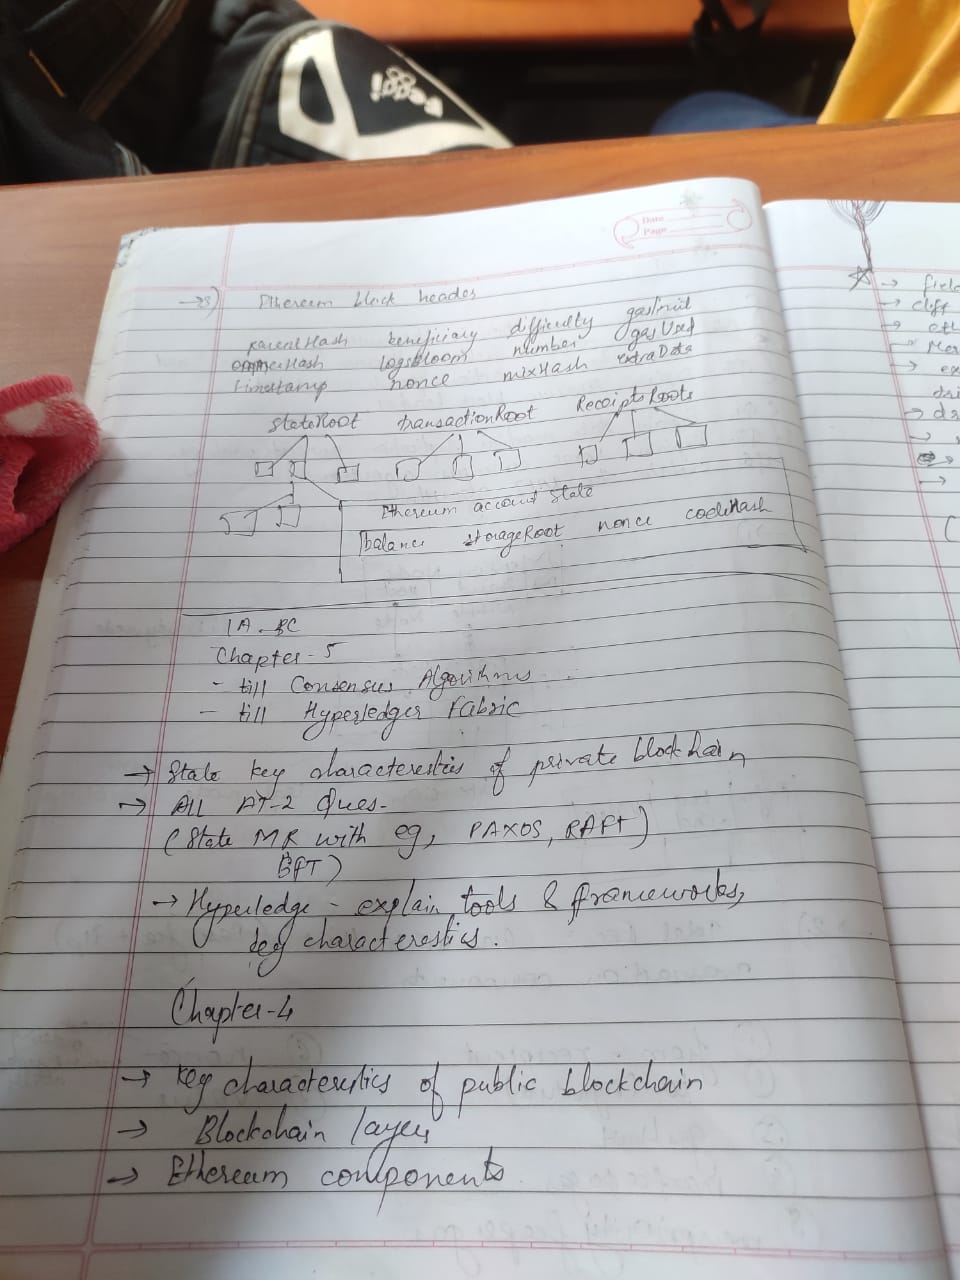 Date
Page
→3) Ethereum block header
parentHash beneficiary difficulty gaslimit
ommerHash logsbloom number gasUsed
timestamp nonce mixHash extraData
stateRoot transactionRoot Receipts Roots
Ethereum account state
balance storageRoot nonce codeHash
IA - BC
Chapter - 5
- till Consensus Algorithms
- till Hyperledger Fabric
→ State key characterestics of private blockchain
→ All AT-2 Ques-
(State MR with eg, PAXOS, RAFT)
BFT)
→ Hyperledge - explain tools & frameworks,
key characterestics.
Chapter-4
→ key characterestics of public blockchain
→ Blockchain layers
→ Ethereum components
→ field
→ cliff
→ oth
→ Mer
→ ex
dri
→ dr